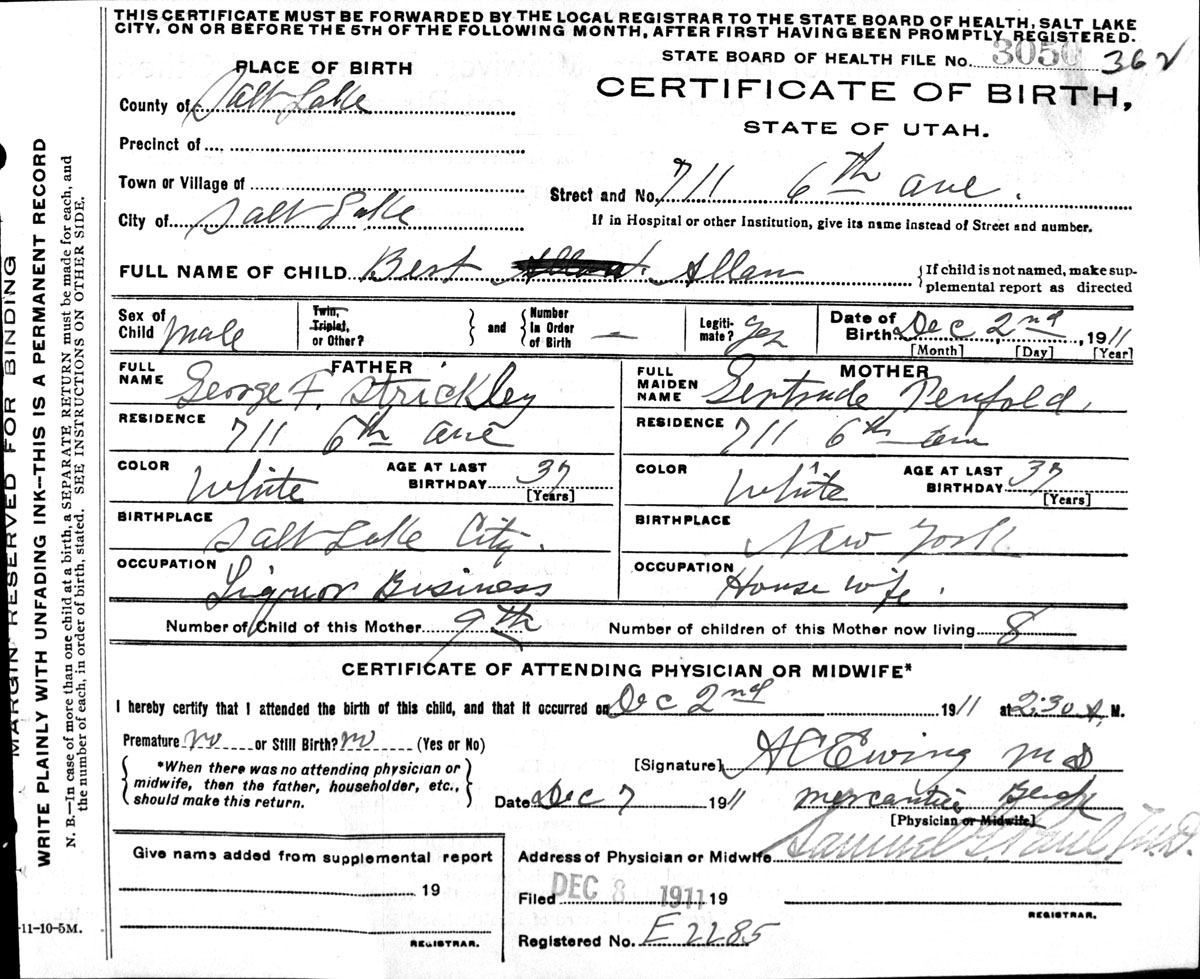 THIS CERTIFICATE MUST BE FORWARDED BY THE LOCAL REGISTRAR TO THE STATE BOARD OF HEALTH, SALT LAKE
CITY, ON OR BEFORE THE 5TH OF THE FOLLOWING MONTH, AFTER FIRST HAVING BEEN PROMPTLY REGISTERED.
STATE BOARD OF HEALTH FILE No. 3050 362
PLACE OF BIRTH
CERTIFICATE OF BIRTH,
STATE OF UTAH.
County of Salt Lake
Precinct of
Town or Village of
Street and No. 711 6th ave.
City of Salt Lake
If in Hospital or other Institution, give its name instead of Street and number.
FULL NAME OF CHILD Best Allan
If child is not named, make sup-
plemental report as directed
Sex of Child male
Twin, Triplet, or Other?
and
Number In Order of Birth —
Legiti- mate? yes
Date of Birth Dec 2nd, 1911
[Month] [Day] [Year]
FATHER
FULL NAME George F. Strickley
RESIDENCE 711 6th ave
COLOR White
AGE AT LAST BIRTHDAY 37 [Years]
BIRTHPLACE Salt Lake City.
OCCUPATION Liquor Business
MOTHER
FULL MAIDEN NAME Gertrude Penfold.
RESIDENCE 711 6th
COLOR White
AGE AT LAST BIRTHDAY 37 [Years]
BIRTHPLACE New York.
OCCUPATION House wife.
Number of Child of this Mother 9th
Number of children of this Mother now living 8
CERTIFICATE OF ATTENDING PHYSICIAN OR MIDWIFE*
I hereby certify that I attended the birth of this child, and that it occurred on Dec 2nd 1911 at 2:30 A. M.
Premature no or Still Birth? no (Yes or No)
*When there was no attending physician or
midwife, then the father, householder, etc.,
should make this return.
[Signature] A C Ewing MD
Date Dec 7 1911
[Physician or Midwife]
Give name added from supplemental report
19
REGISTRAR.
Address of Physician or Midwife
Samuel G. Paul M.D.
Filed DEC 8 1911 19
REGISTRAR.
Registered No. E 2285
MARGIN RESERVED FOR BINDING
WRITE PLAINLY WITH UNFADING INK—THIS IS A PERMANENT RECORD
N. B.—In case of more than one child at a birth, a SEPARATE RETURN must be made for each, and
the number of each, in order of birth, stated. SEE INSTRUCTIONS ON OTHER SIDE.
-11-10-5M.